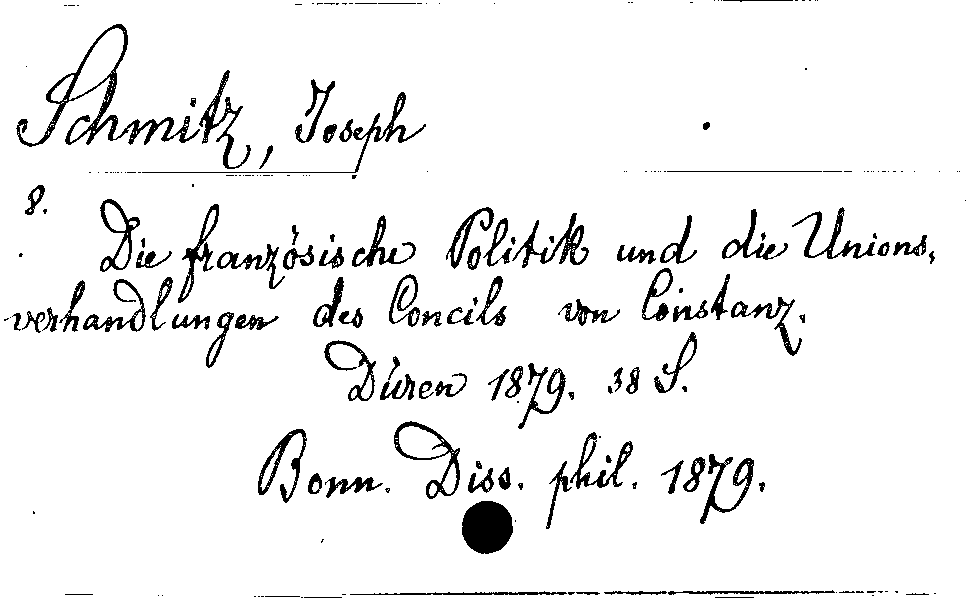 Schmitz, Joseph
8.
Die französische Politik und die Unions-
verhandlungen des Concils von Constanz.
Düren 1879. 38 S.
Bonn. Diss. phil. 1879.